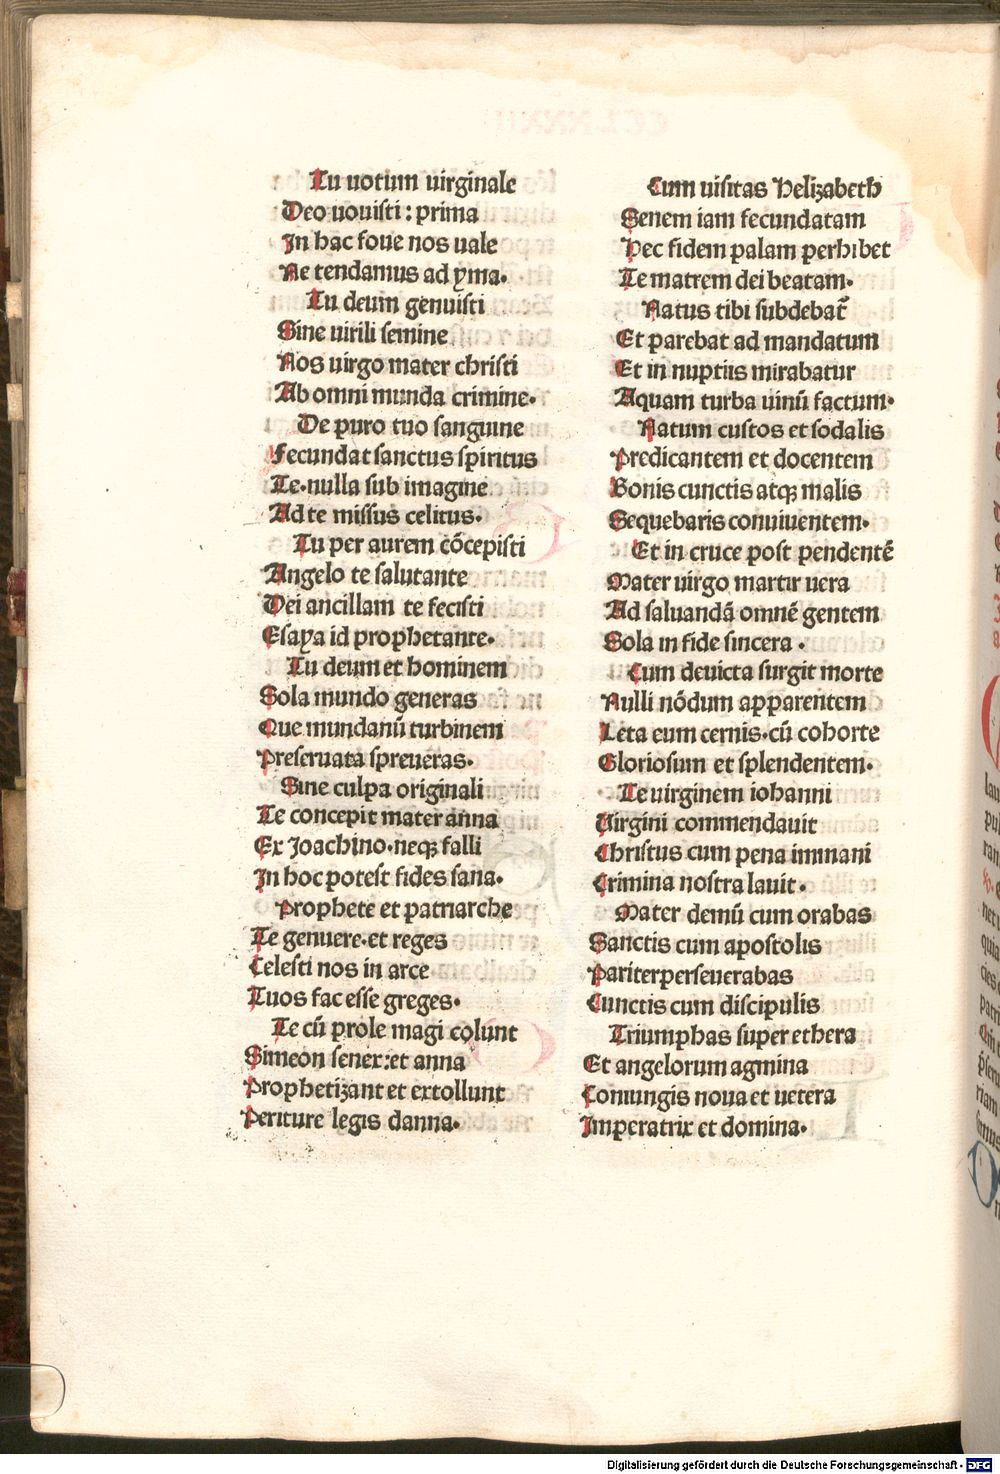 Tu uotum uirginale
Deo uouisti : prima
In hac foue nos uale
Ne tendamus ad yma.
Tu deum genuisti
Sine uirili semine
Nos uirgo mater christi
Ab omni munda crimine.
De puro tuo sanguine
Fecundat sanctus spiritus
Te.nulla sub imagine
Ad te missus celitus.
Tu per aurem cōcepisti
Angelo te salutante
Dei ancillam te fecisti
Esaya id prophetante.
Tu deum et hominem
Sola mundo generas
Que mundanū turbinem
Preseruata spreueras.
Sine culpa originali
Te concepit mater anna
Ex Joachino.neqȝ falli
In hoc potest fides sana.
Prophete et patriarche
Te genuere.et reges
Celesti nos in arce
Tuos fac esse greges.
Te cū prole magi colunt
Simeon senex:et anna
Prophetizant et extollunt
Periture legis danna.
Cum uisitas Helizabeth
Senem iam fecundatam
Hec fidem palam perhibet
Te matrem dei beatam.
Natus tibi subdebat̄
Et parebat ad mandatum
Et in nuptiis mirabatur
Aquam turba uinū factum.
Natum custos et sodalis
Predicantem et docentem
Bonis cunctis atqȝ malis
Sequebaris conuiuentem.
Et in cruce post pendentē
Mater uirgo martir uera
Ad saluandā omnē gentem
Sola in fide sincera .
Cum deuicta surgit morte
Nulli nōdum apparentem
Leta eum cernis.cū cohorte
Gloriosum et splendentem.
Te uirginem iohanni
Uirgini commendauit
Christus cum pena immani
Crimina nostra lauit.
Mater demū cum orabas
Sanctis cum apostolis
Pariterperseuerabas
Cunctis cum discipulis
Triumphas super ethera
Et angelorum agmina
Coniungis noua et uetera
Imperatrix et domina.
Digitalisierung gefördert durch die Deutsche Forschungsgemeinschaft - DFG